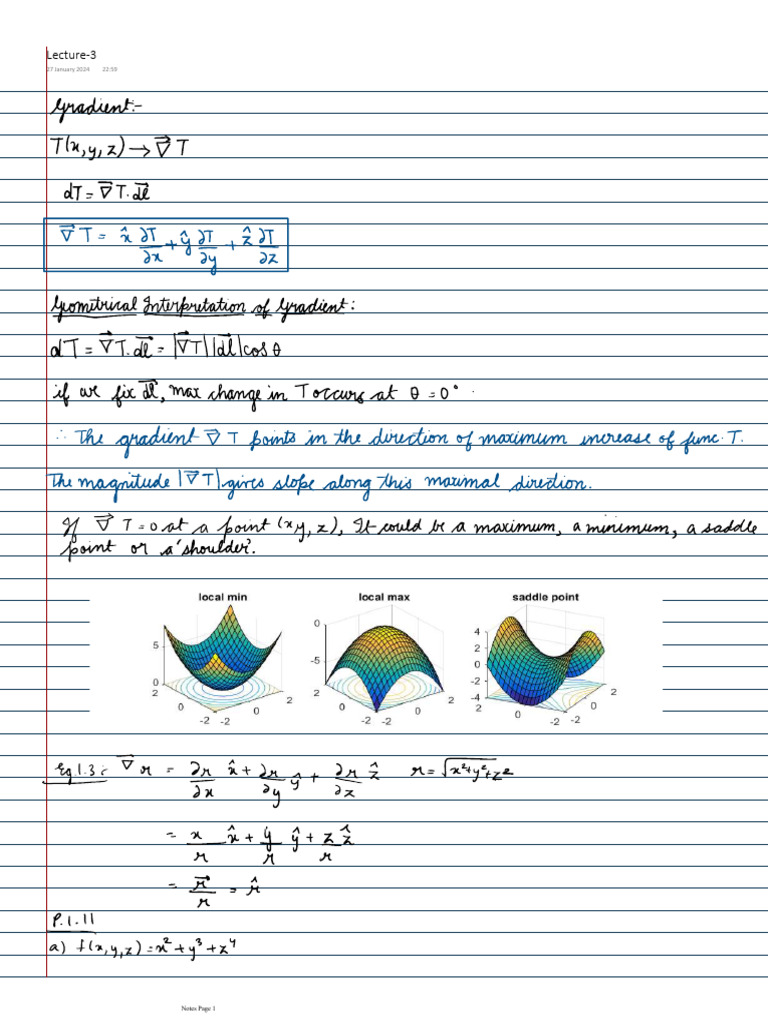 Lecture-3
27 January 2024 22:59
Gradient:-
T(x,y,z) → ∇⃗ T
dT = ∇⃗ T. dl⃗
∇⃗ T = x̂ ∂T/∂x + ŷ ∂T/∂y + ẑ ∂T/∂z
Geometrical Interpretation of Gradient:
dT = ∇⃗ T. dl⃗ = |∇⃗ T| |dl⃗| cos θ
if we fix dl⃗, max change in T occurs at θ = 0°.
∴ The gradient ∇⃗ T points in the direction of maximum increase of func. T.
The magnitude |∇⃗ T| gives slope along this maximal direction.
If ∇⃗ T = 0 at a point (x,y,z), It could be a maximum, a minimum, a saddle
point or a 'shoulder'.
local min local max saddle point
5 0 2 0 -2 -2 0 2
0 -5 2 0 -2 -2 0 2
4 2 0 -2 -4 2 0 -2 -2 0 2
Eg 1.3: ∇⃗ r = ∂r/∂x x̂ + ∂r/∂y ŷ + ∂r/∂z ẑ r = √x²+y²+z²
= x/r x̂ + y/r ŷ + z/r ẑ
= r⃗/r = r̂
P.1.11
a) f(x,y,z) = x² + y³ + z⁴
Notes Page 1